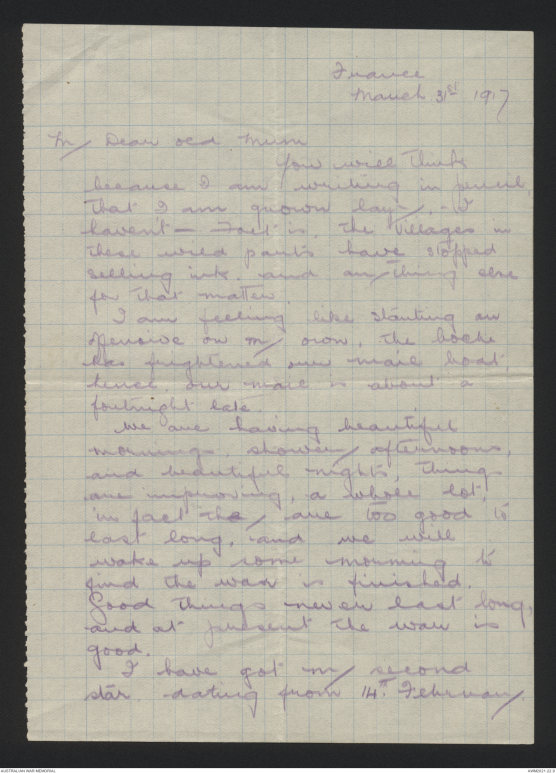 France
March 31st 1917
My Dear old Mum
You will think
because I am writing in pencil,
that I am grown lazy, - I
haven't - Fact is, the Villages in
these wild parts have stopped
selling ink. and anything else
for that matter.
I am feeling like starting an
offensive on my own, the boche
has frightened our mail boat,
hence our mail is about a
fortnight late.
We are having beautiful
mornings, showery afternoons,
and beautiful nights, things
are improving, a whole lot,
in fact they are too good to
last long, and we will
wake up some morning to
find the war is finished.
Good things never last long,
and at present the war is
good.
I have got my second
star dating from 14th February.
AUSTRALIAN WAR MEMORIAL